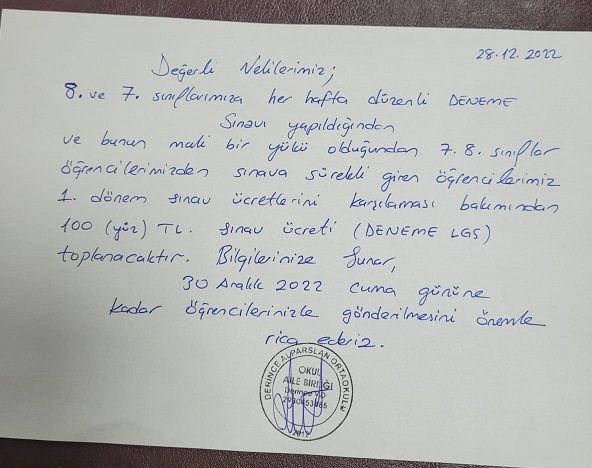 28.12.2022
Değerli Velilerimiz;
8. ve 7. sınıflarımıza her hafta düzenli DENEME
Sınavı yapıldığından
ve bunun mali bir yükü olduğundan 7. 8. sınıflar
öğrencilerimizden sınava sürekli giren öğrencilerimiz
1. dönem sınav ücretlerini karşılaması bakımından
100 (yüz) TL. sınav ücreti (DENEME LGS)
toplanacaktır. Bilgilerinize Sunar,
30 Aralık 2022 Cuma gününe
kadar öğrencilerinizle gönderilmesini önemle
rica ederiz.
DERİNCE ALPARSLAN ORTAOKULU
OKUL
AİLE BİRLİĞİ
Derince V.D